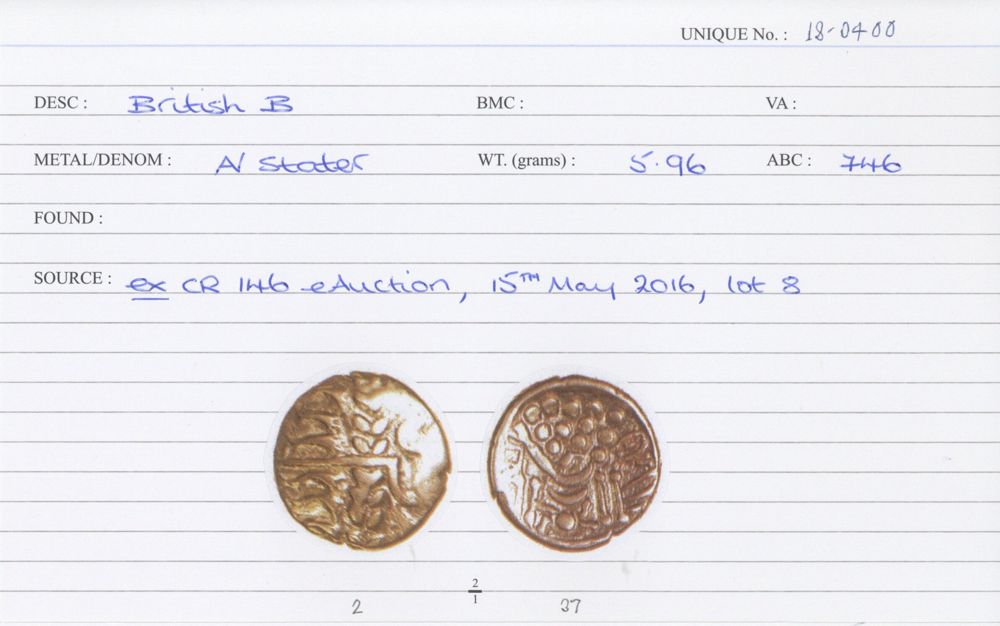 UNIQUE No. : 18-0400
DESC : British B BMC : VA :
METAL/DENOM : A/ Stater WT. (grams) : 5.96 ABC : 746
FOUND :
SOURCE : ex CR 146 eAuction, 15TH May 2016, lot 8
2/1
2 37